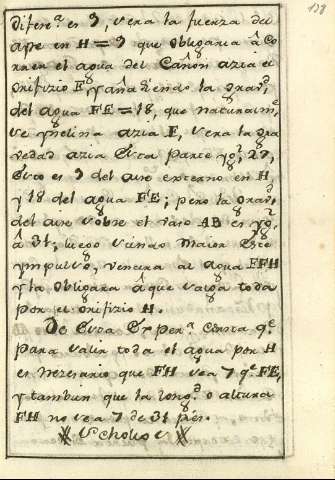 diferẽ.ᵃ es 9, vera la fuerza del
ayre en H = 9 que obligaria â Co
rrer el agua del Cañon azia el
orifizio E, y añadiendo la gravᵈ
del agua FE = 18, que naturalmᵉ
se ynclina azia E, vera la gra
vedad azia esta parte yg.ˡ 27,
esto es 9 del aire externo en H,
y 18 del agua FE; pero la gravᵈ
del aire sobre el vaso AB es yg.ˡ
â 31; luego siendo maior este
ympulso, vencera al agua FFH
y la obligara â que salga toda
por el orifizio H.
De esta Experᵃ consta qᵉ
para salir toda el agua por H
es nezesario que FH sea > qᵉ FE,
y tambien que la longᵈ o altura
FH no sea > de 31 pies.
Scholio